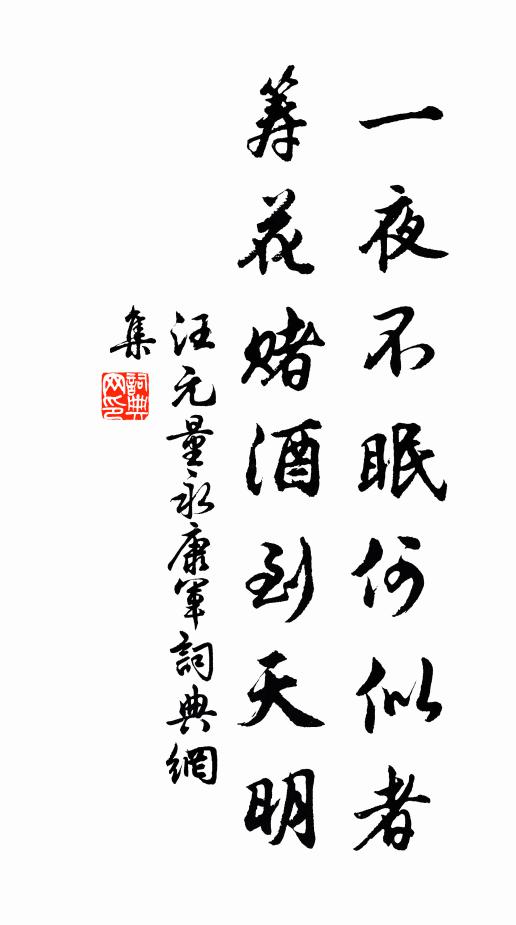 一夜不眠何似者
筭花赌酒到天明
汪元量永康军詞典網
集
詞典网印